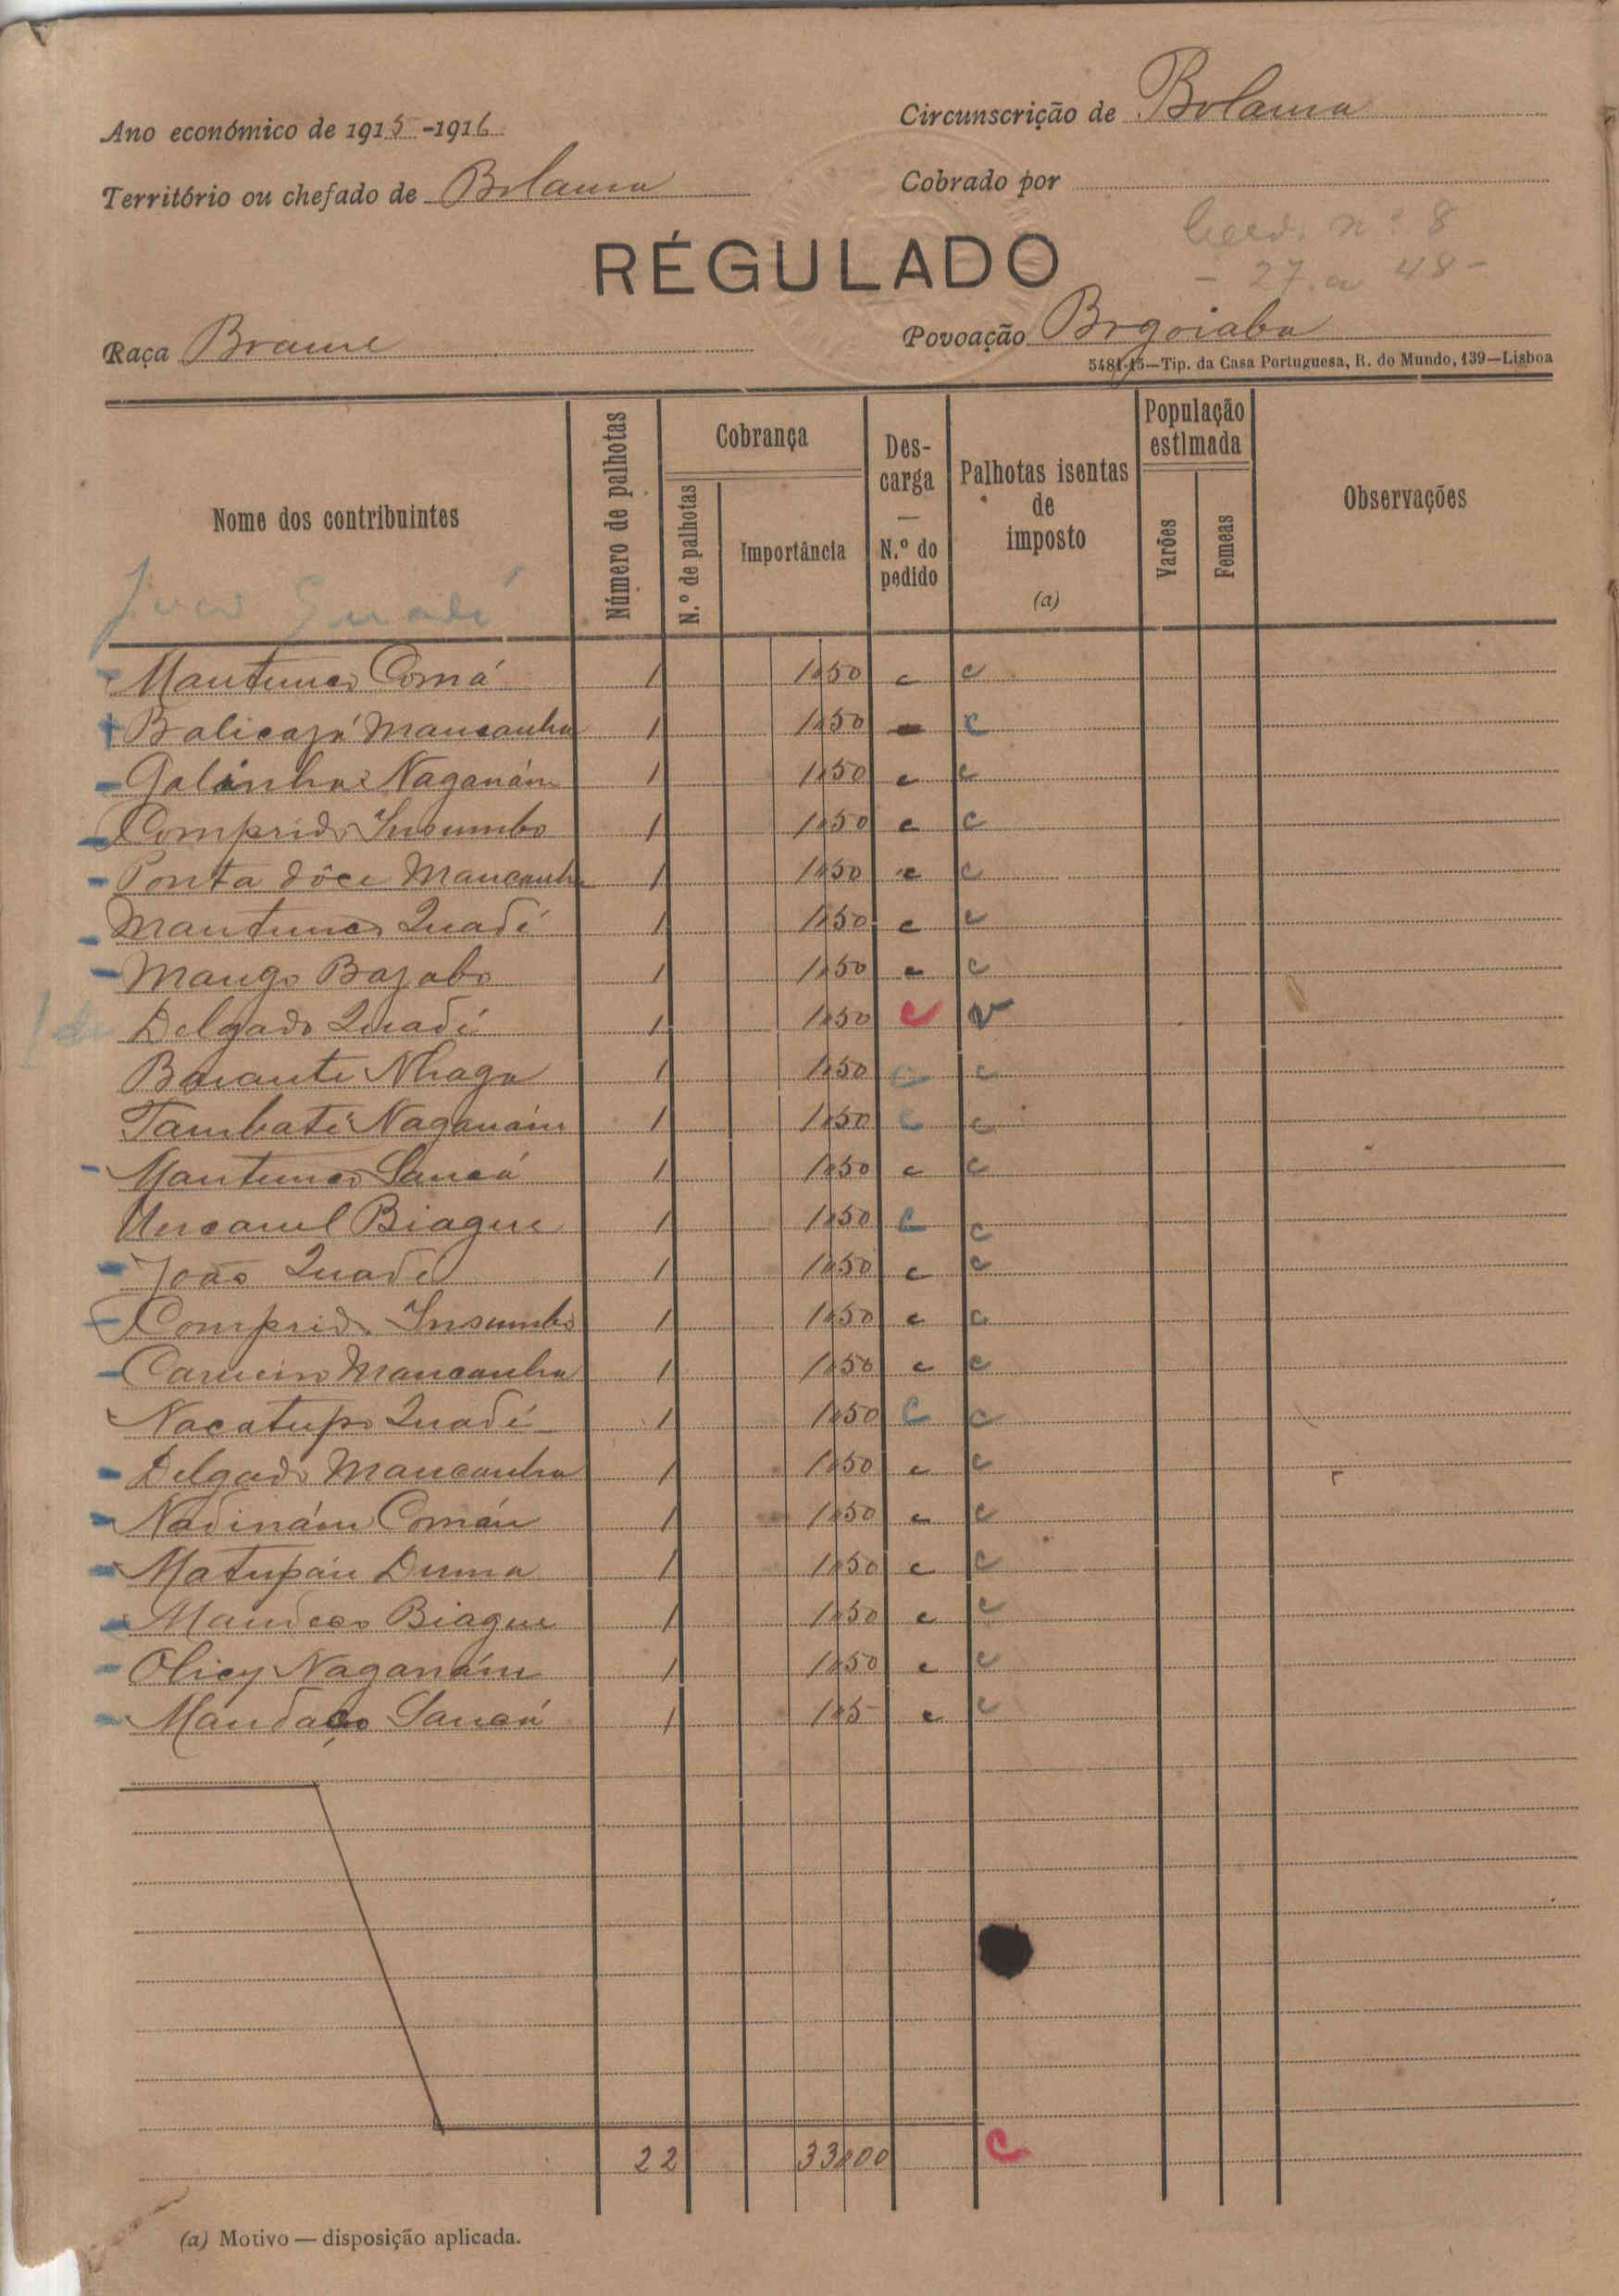 Ano económico de 1915-1916
Circunscrição de Bolama
Território ou chefado de Bolama
Cobrado por
n.º 8
- 27 a 48 -
RÉGULADO
Raça Brame
Povoação Bogoiaba
5481-15—Tip. da Casa Portuguesa, R. do Mundo, 139—Lisboa
Nome dos contribuintes
Número de palhotas
Cobrança
N.º de palhotas
Importância
Descarga — N.º do pedido
Palhotas isentas de imposto (a)
População estimada
Varões
Femeas
Observações
Mantunes Comá 1 1$50 c c
Balicazá Mancanha 1 1$50 c
Galinha Naganám 1 1$50 c c
Comprido Insumbo 1 1$50 c c
Ponta dôce Mancanha 1 1$50 c c
Mantunes Quadé 1 1$50 c c
Mango Bajabo 1 1$50 c c
Delgado Quadé 1 1$50 c v
Nhaga 1 1$50 c c
Tambaté Naganám 1 1$50 c c
Mantunes Sancá 1 1$50 c c
Biague 1 1$50 c c
João Quadé 1 1$50 c c
Comprido Insumbo 1 1$50 c c
Carneiro Mancanha 1 1$50 c c
Nacatupo Quadé 1 1$50 c c
Delgado Mancanha 1 1$50 c c
Nadinám Comán 1 1$50 c c
Matupán Duma 1 1$50 c c
Biague 1 1$50 c c
Naganám 1 1$50 c c
Mandaço Sancá 1 1$5 c c
22 33$00 c
(a) Motivo — disposição aplicada.